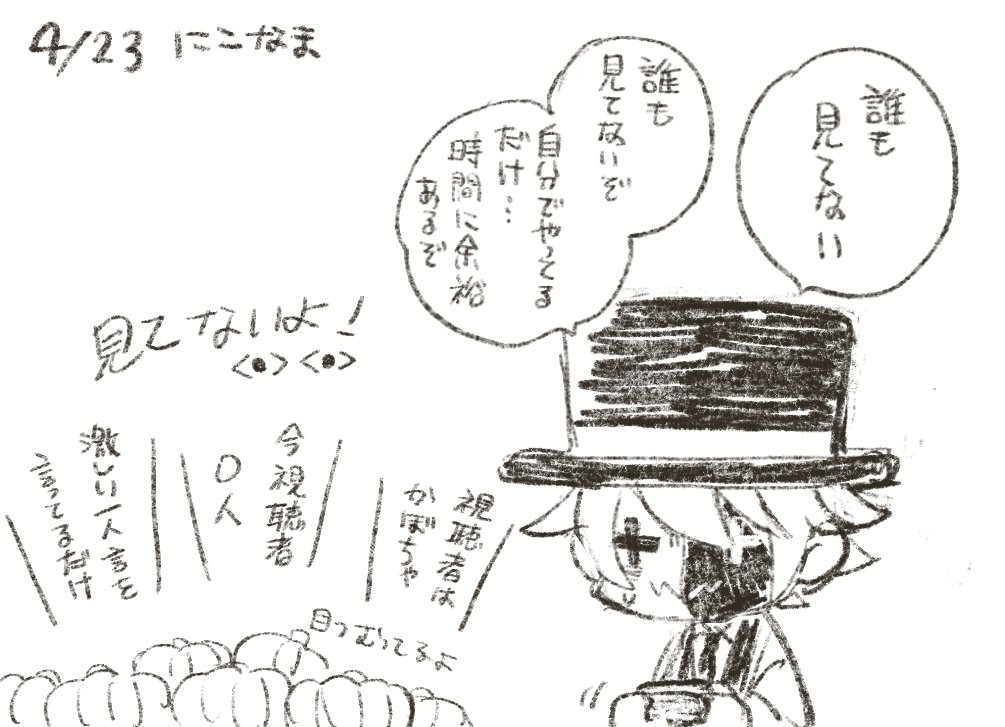 4/23 にこなま
誰も
見てない
誰も
見てないぞ
自分でやってる
だけ…
時間に余裕
あるぞ
見てないよ!
視聴者は
かぼちゃ
今視聴者
0人
激しい一人言を
言ってるだけ
目つむってるよ